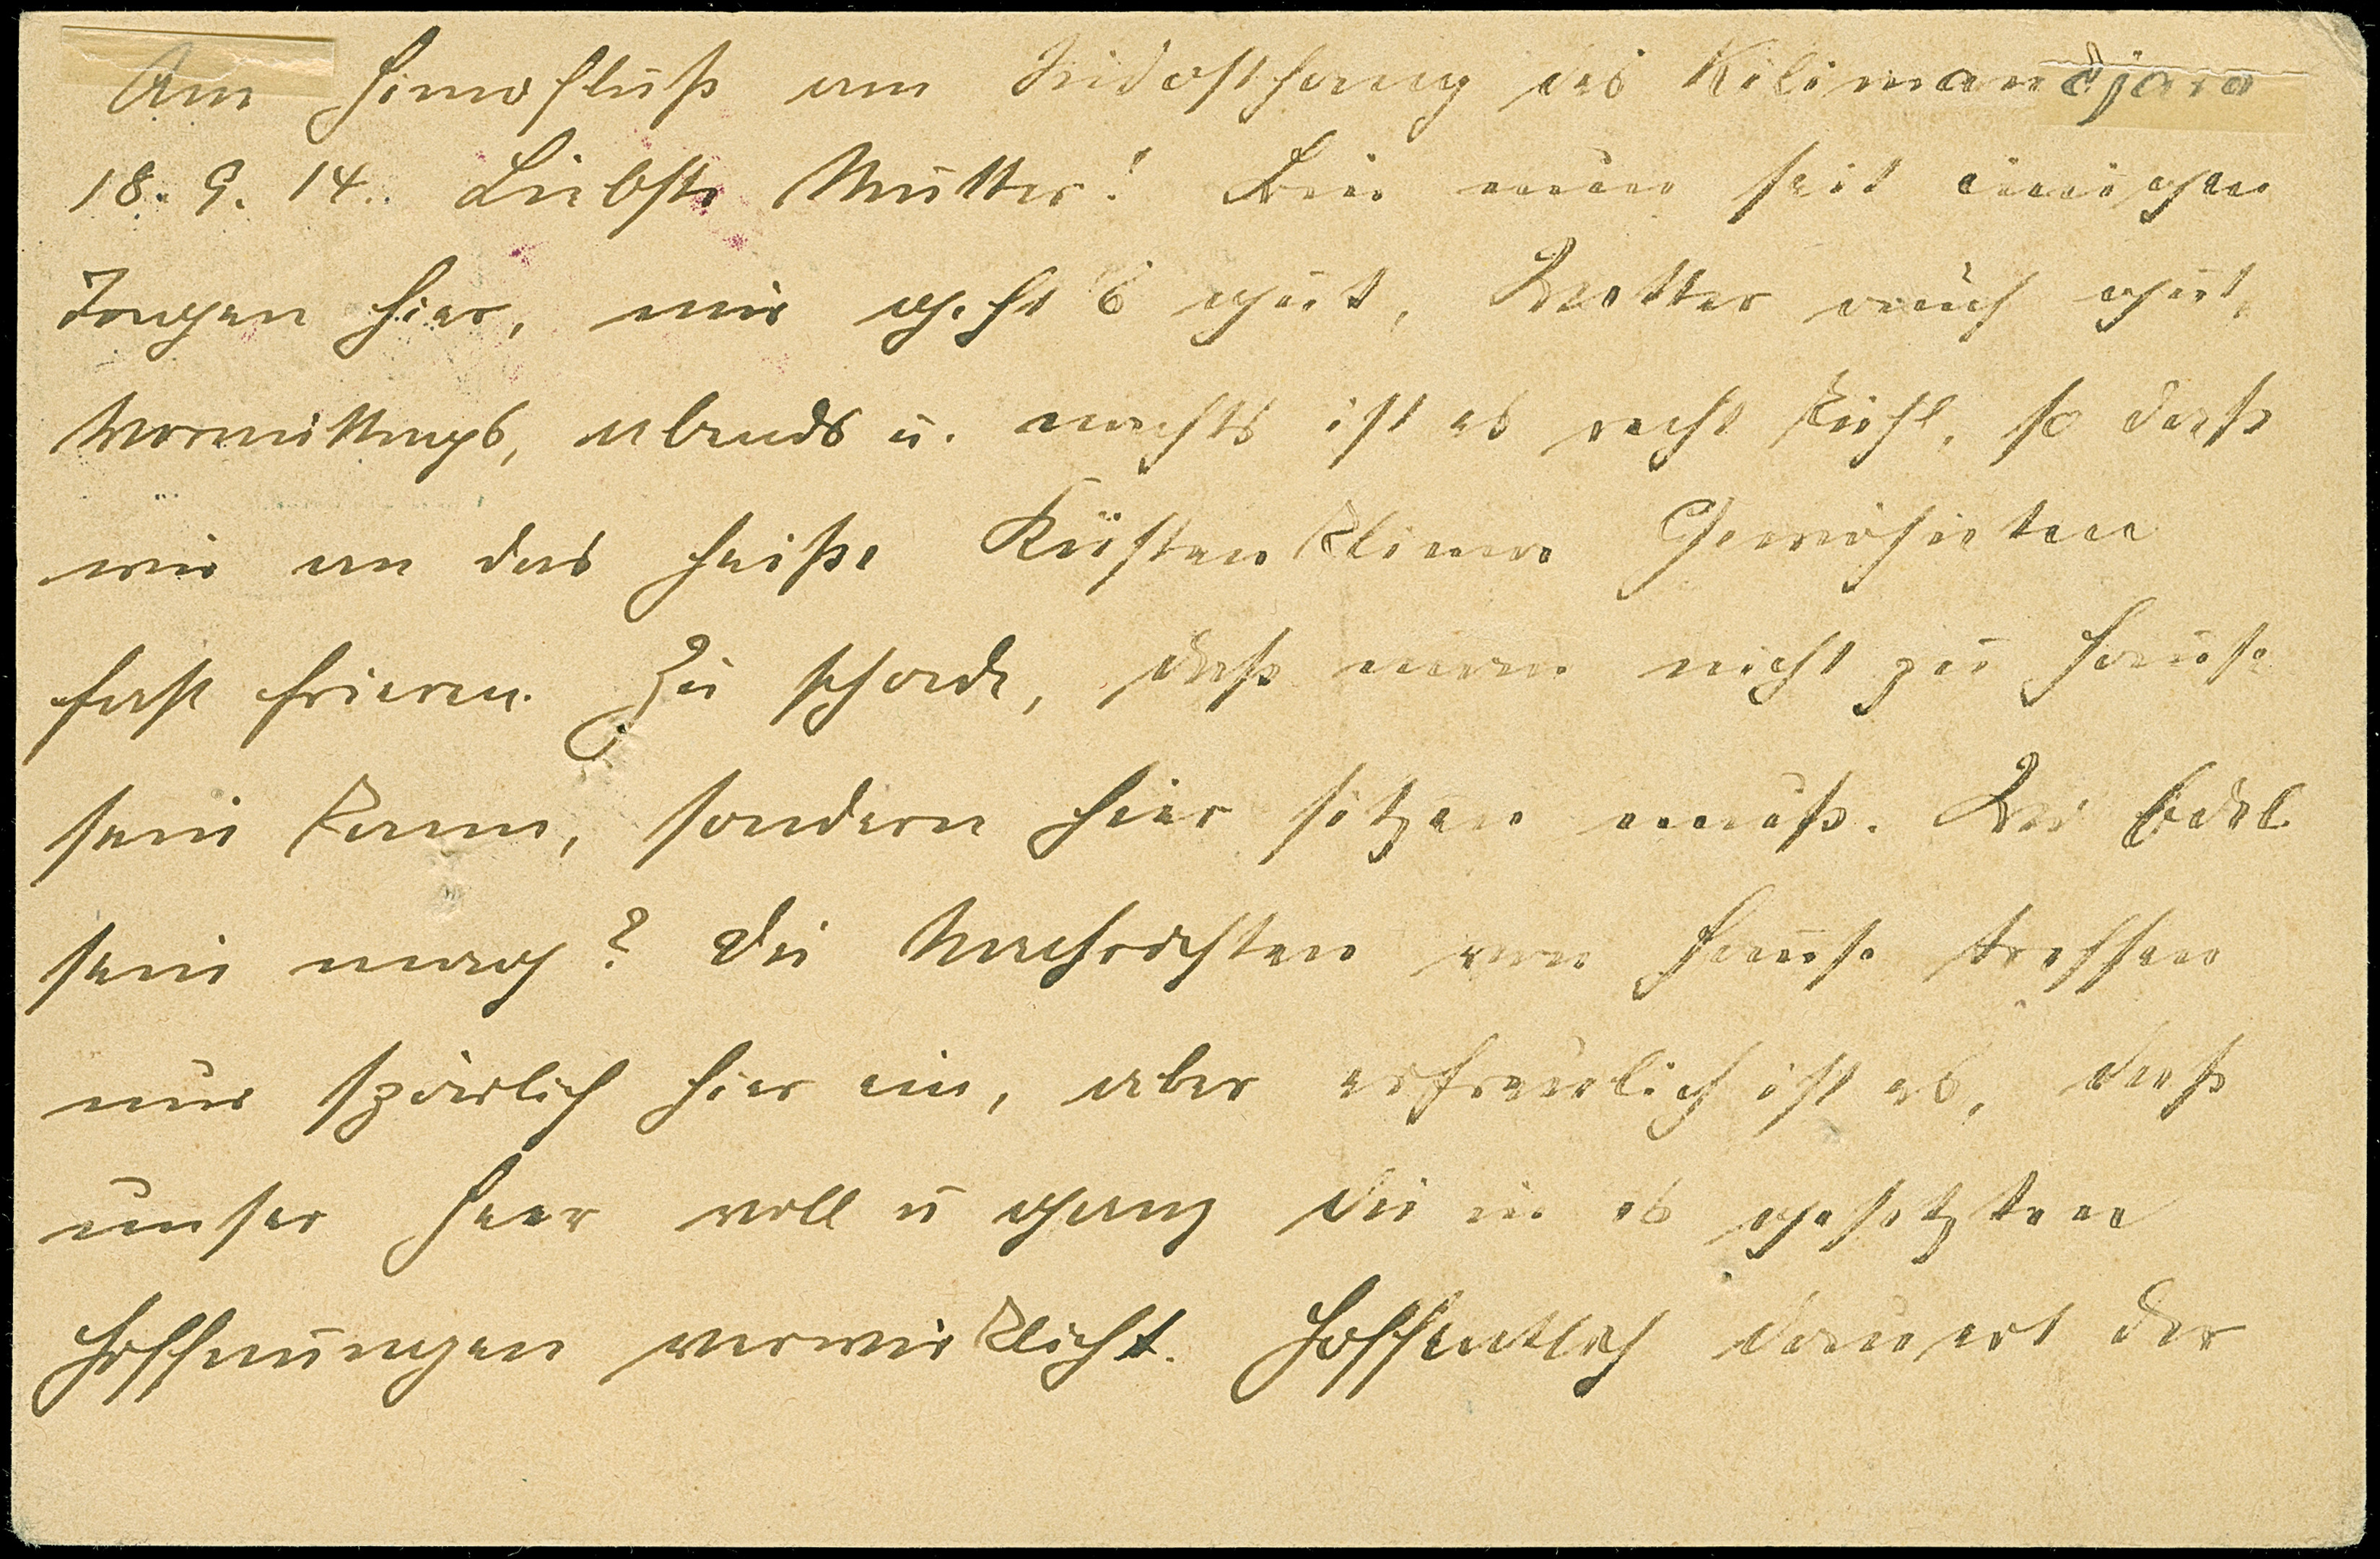 Am Himofluß am Südosthang des Kilimandjaro
18. 9. 14. Liebste Mutter! Bin nun seit einigen
Tagen hier, mir geht's gut, Wetter auch gut,
Vormittags, abends u. nachts ist es recht kühl, so daß
wir an das heiße Küstenklima Gewöhnten
fast frieren. Zu schade, daß man nicht zu Hause
sein kann, sondern hier sitzen muß. Wo
sein mag? Die Nachrichten von Hause treffen
nur spärlich hier ein, aber erfreulich ist es, daß
unser Heer voll u ganz die in es gesetzten
Hoffnungen verwirklicht. Hoffentlich dauert der